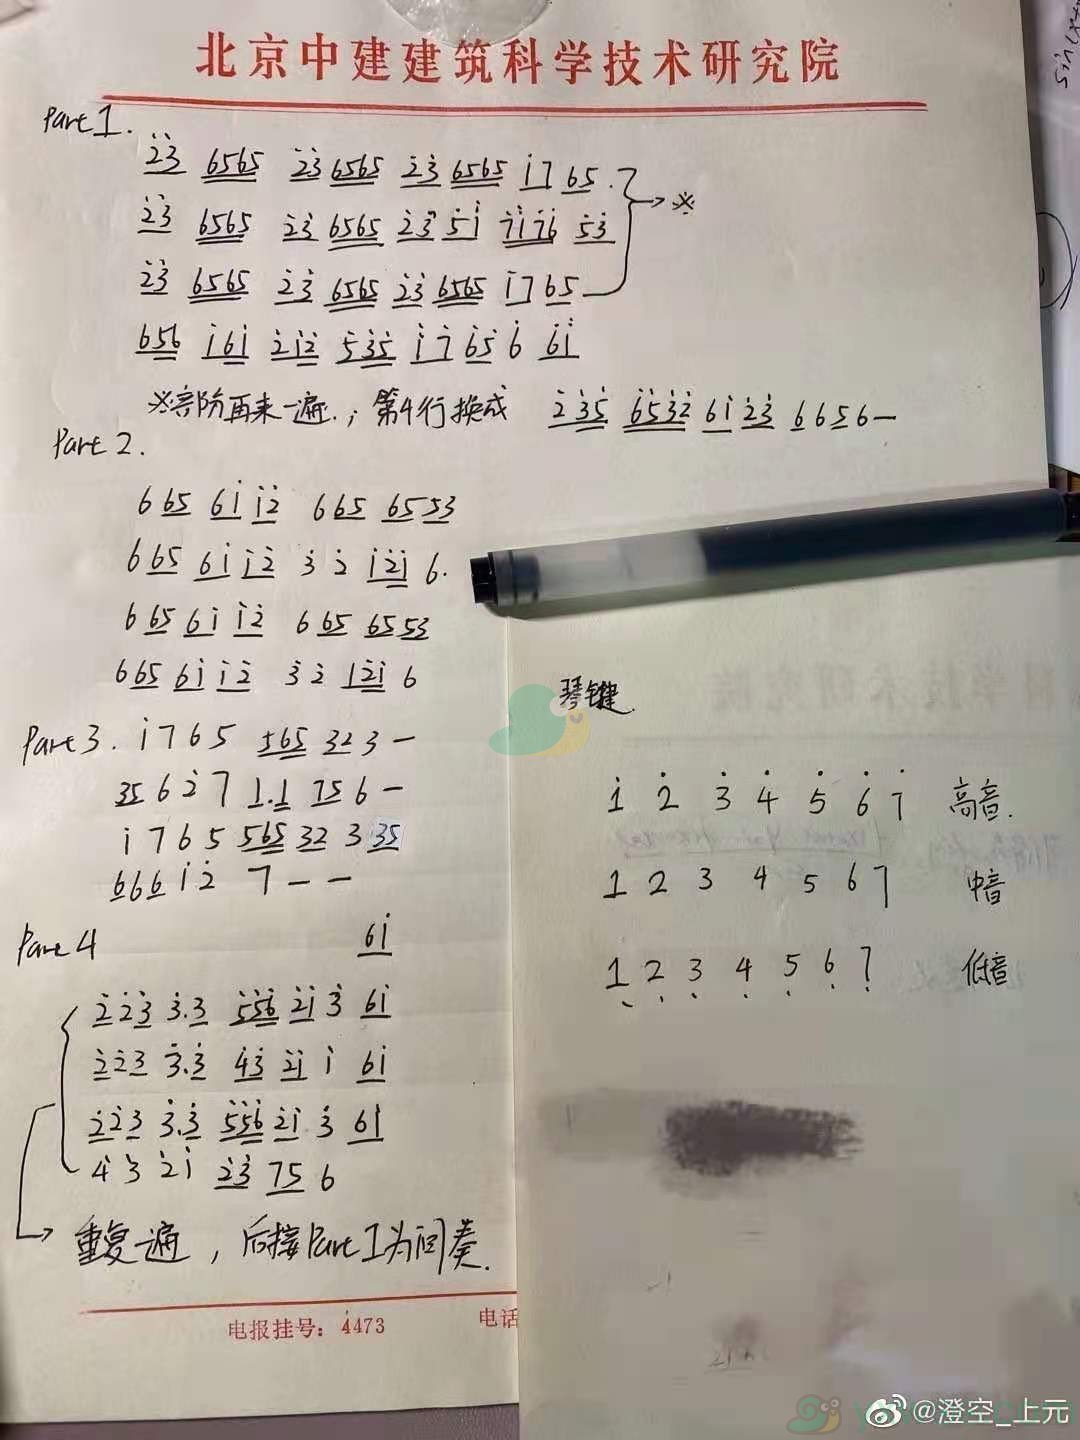 北京中建建筑科学技术研究院
Part 1.
2̇3̇ 6565 2̇3̇ 6565 2̇3̇ 6565 1̇7 65.
→※
2̇3̇ 6565 2̇3̇ 6565 2̇3̇ 5̇1̇ 7̇1̇7̇6̇ 5̇3̇
2̇3̇ 6565 2̇3̇ 6565 2̇3̇ 6565 1̇7 65
656 1̇61̇ 2̇1̇2̇ 5̇3̇5̇ 1̇7 65 6 61̇
※ 再来一遍.,第4行换成 2̇3̇5̇ 6̇5̇3̇2̇ 61̇ 2̇3̇ 6656—
Part 2.
6 65 61̇ 1̇2̇ 6 65 65 53
6 65 61̇ 1̇2̇ 3̇ 2̇ 1̇2̇1̇ 6.
6 65 61̇ 1̇2̇ 6 65 65 53
6 65 61̇ 1̇2̇ 3̇ 2̇ 12̇1̇ 6
Part 3. 1̇ 7 6 5 565 32 3 —
35 6 2̇ 7 1.1 75 6 —
1̇ 7 6 5 565 32 3 35
6 6 6 1̇ 2̇ 7 — —
Part 4 61̇
2̇ 2̇3̇ 3̇.3̇ 5̇5̇6̇ 2̇1̇ 3̇ 61̇
2̇ 2̇3̇ 3̇.3̇ 4̇3̇ 2̇1̇ 1̇ 61̇
2̇ 2̇3̇ 3̇.3̇ 5̇5̇6̇ 2̇1̇ 3̇ 61̇
4̇ 3̇ 2̇1̇ 2̇3̇ 75 6
重复一遍,后接Part 1为间奏.
电报挂号:4473
电话
琴键
1̇ 2̇ 3̇ 4̇ 5̇ 6̇ 7̇ 高音.
1 2 3 4 5 6 7 中音
1̣ 2̣ 3̣ 4̣ 5̣ 6̣ 7̣ 低音
@澄空_上元